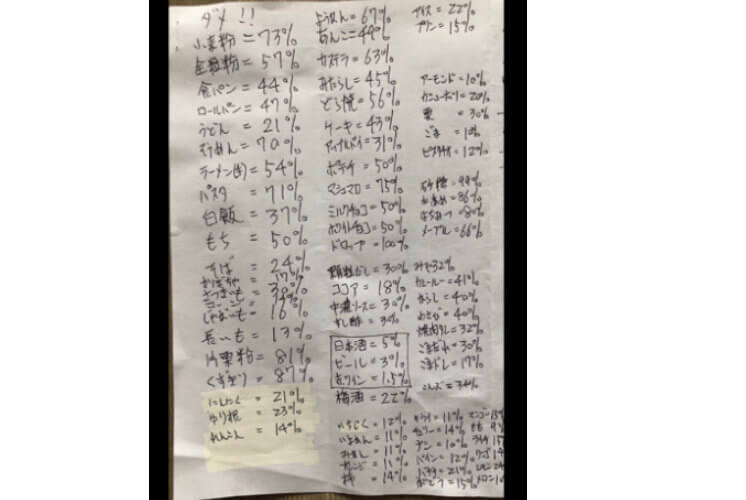 ダメ!!
小麦粉 = 73%
全粒粉 = 57%
食パン = 44%
ロールパン = 47%
うどん = 21%
そうめん = 70%
ラーメン(生) = 54%
パスタ = 71%
白飯 = 37%
もち = 50%
そば = 24%
かぼちゃ = 17%
さつまいも = 30%
コーン =
じゃがいも = 16%
長いも = 13%
片栗粉 = 81%
くずきり = 87%
にんにく = 21%
ゆり根 = 23%
れんこん = 14%
ようかん = 67%
あんこ = 49%
カステラ = 63%
みたらし = 45%
どら焼 = 56%
ケーキ = 43%
アップルパイ = 31%
ポテチ = 50%
マシュマロ = 75%
ミルクチョコ = 50%
ホワイトチョコ = 50%
ドロップ = 100%
顆粒だし = 30%
ココア = 18%
中濃ソース = 30%
すし酢 =
日本酒 = 5%
ビール = 3%
白ワイン = 1.5%
梅酒 = 22%
いちじく = 12%
いよかん = 11%
みかん = 11%
オレンジ = 11%
柿 = 14%
アイス = 22%
プリン = 15%
アーモンド = 10%
カシューナッツ = 20%
栗 = 30%
ごま =
ピスタチオ = 12%
砂糖 = 99%
水あめ = 86%
はちみつ = 80%
メープル = 66%
カレールー = 41%
からし = 40%
わさび = 40%
焼肉タレ = 32%
ごまだれ = 30%
ごまドレ = 17%
キウイ = 11%
チェリー = 14%
ナシ = 10%
パイン = 12%
バナナ = 21%
ぶどう = 15%
マンゴー
もも
ライチ
リンゴ
レモン
メロン